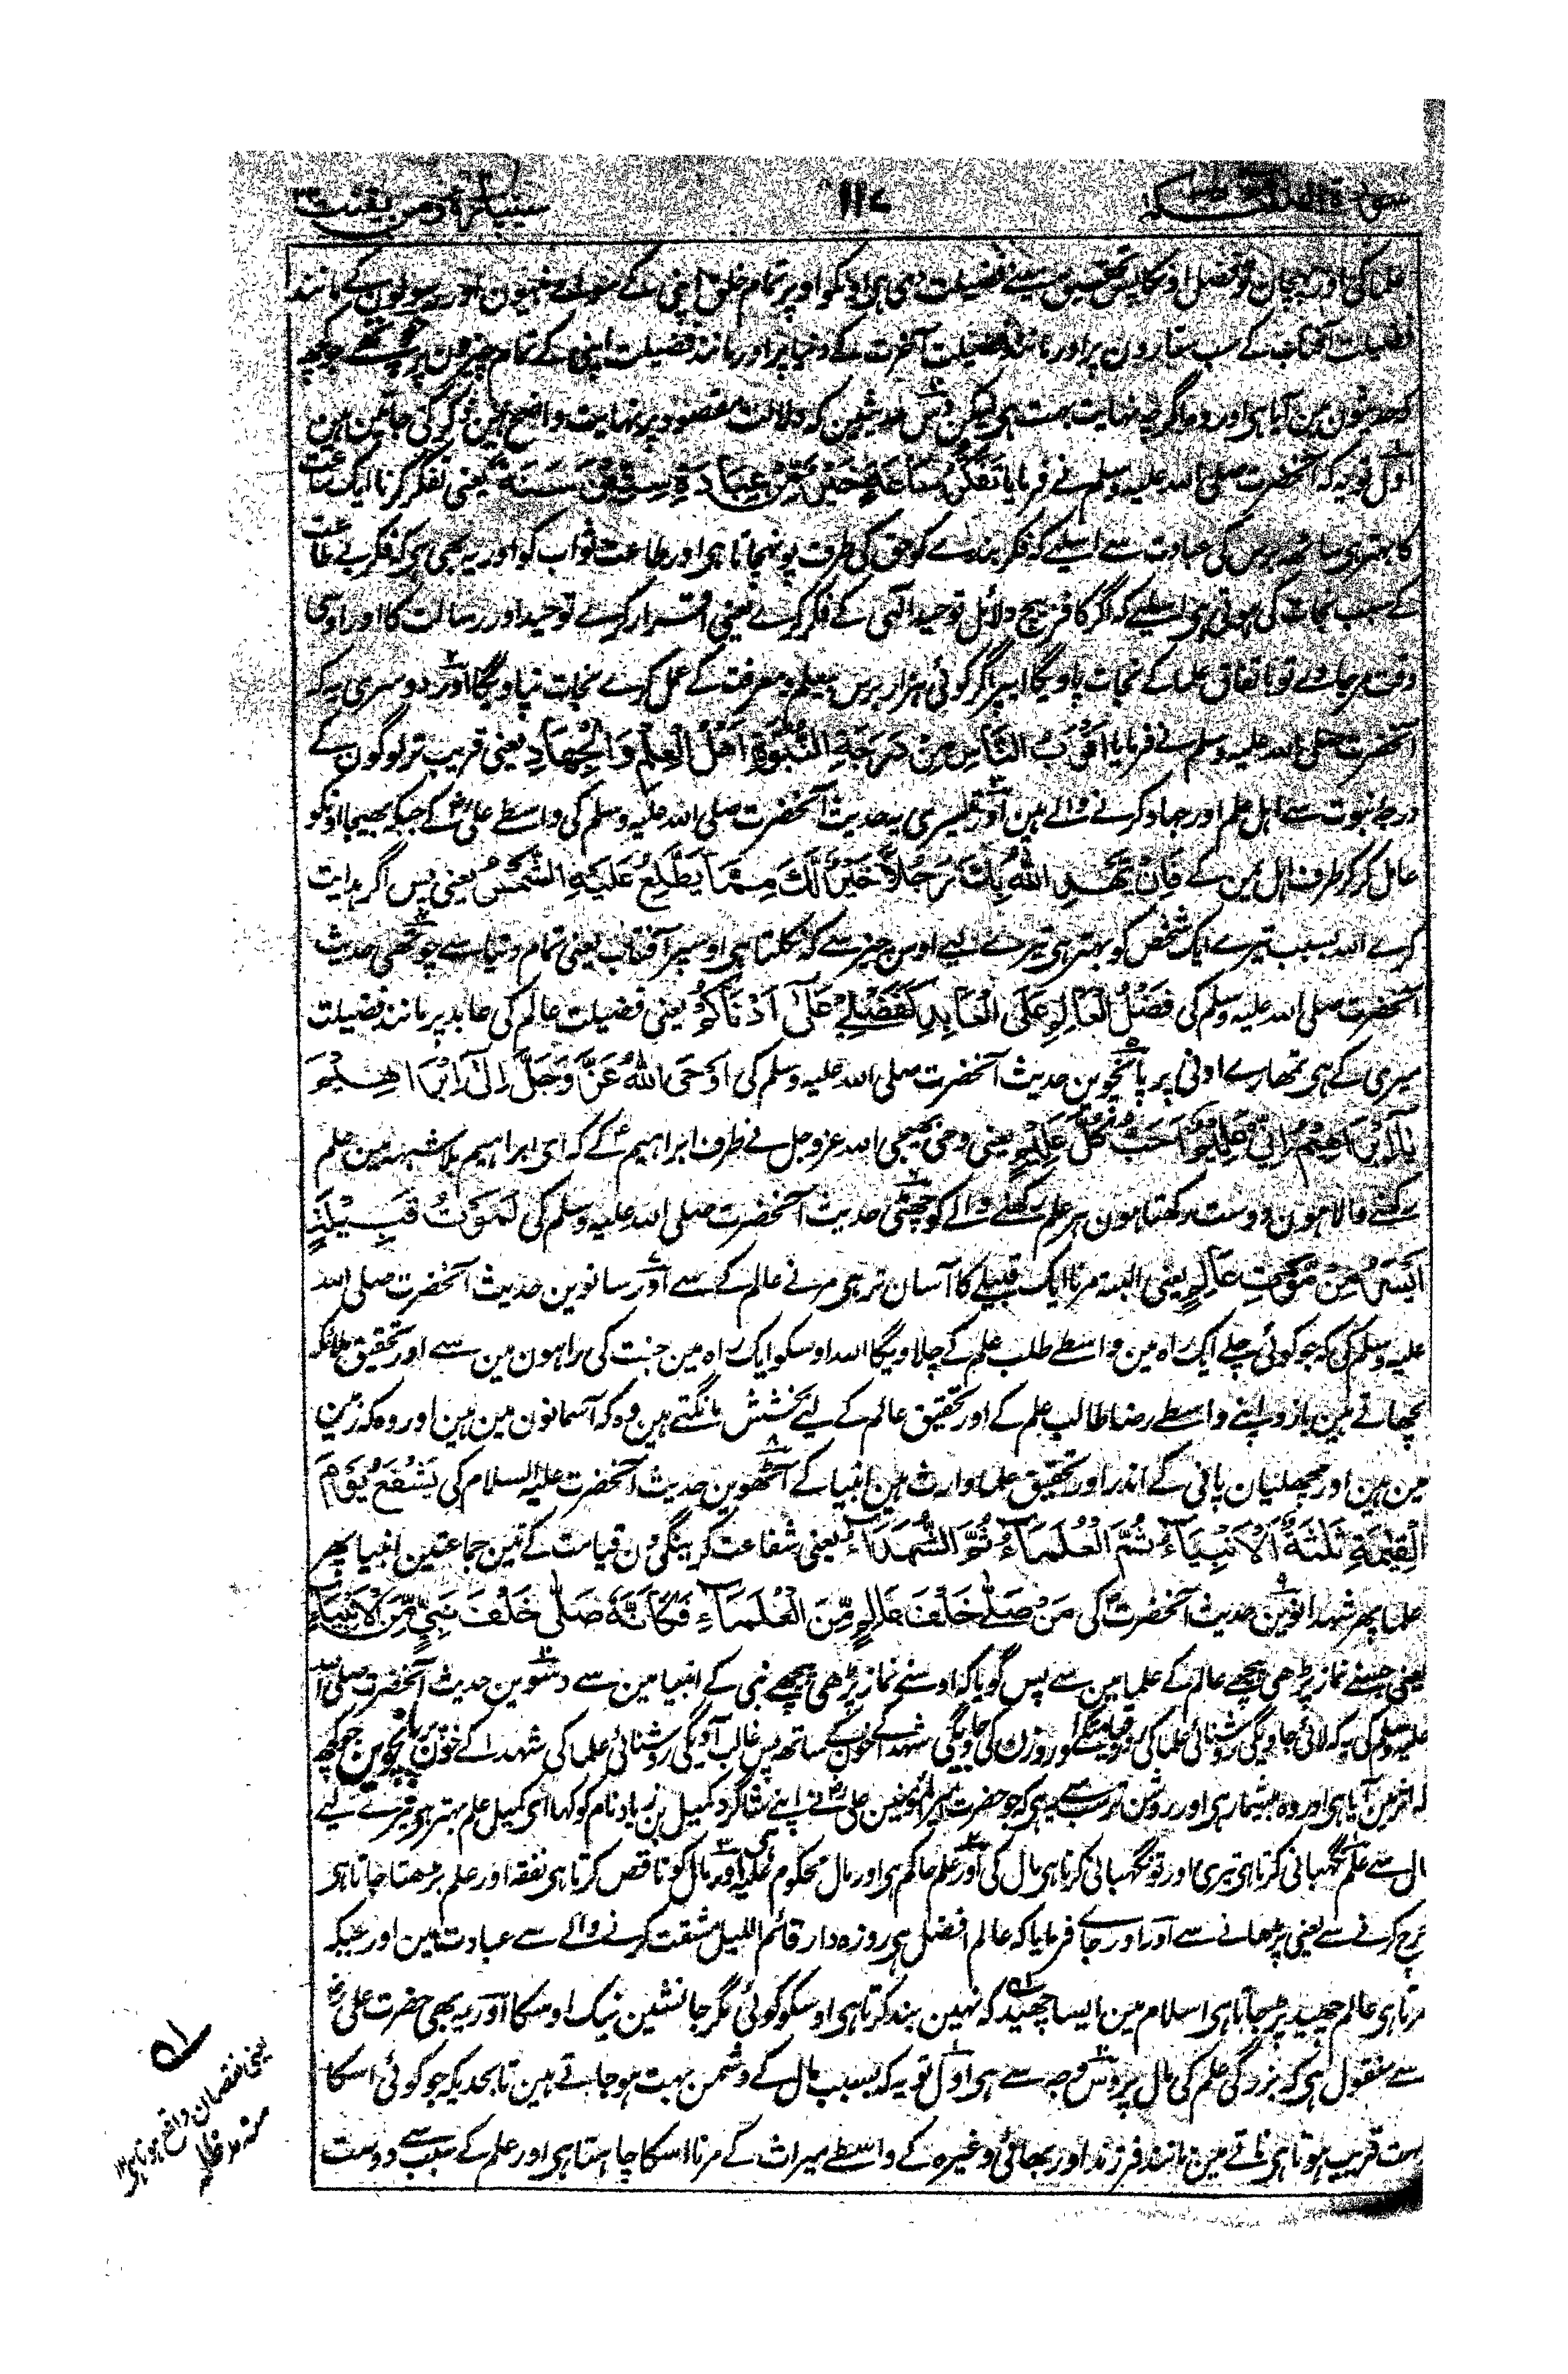 ۱۱۷
علما کی اور پہچان تو فضل اونکا پس تحقیق مینے فضیلت دی ہی اونکو اوپر تمام خلق اپنی کے سواے نبیون اور رسولون کے مانند
فضیلت آفتاب کے سب ستارون پر اور مانند فضیلت آخرت کے دنیا پر اور مانند فضیلت اپنی کے تمام چیزون پر چوتھے جو کچھ
کہ حدیثون مین آیا ہی اور وہ اگرچہ نہایت بہت ہی لیکن دس حدیثین کہ دلالت مقصود پر نہایت واضح ہین ذکر کی جاتین ہین
اول تو یہ کہ آنحضرت صلی اللہ علیہ وسلم نے فرمایا تَفَكُّرُ سَاعَةٍ خَيْرٌ مِّنْ عِبَادَةِ سِتِّيْنَ سَنَةً یعنی تفکر کرنا ایک ساعت
کا بہتر ہی ساٹھ برس کی عبادت سے اسلیے کہ فکر بندے کو حق کی طرف پونہچاتا ہی اور طاعت ثواب کو اور یہ بھی ہی کہ فکر بے طاعت
کے سبب نجات کی ہوتی ہی اسلیے کہ اگر کافر بیچ دلائل توحید الٰہی کے فکر کرے یعنی اقرار کرے توحید اور رسالت کا اور اوسی
وقت مرجاوے تو باتفاق علما کے نجات پاویگا اسپر اگر کوئی ہزار برس بیعلم و معرفت کے عمل کرے نجات نپاویگا اور دوسری یہ کہ
آنحضرت صلی اللہ علیہ وسلم نے فرمایا اَقْرَبُ النَّاسِ مِنْ دَرَجَةِ النُّبُوَّةِ اَهْلُ الْعِلْمِ وَالْجِهَادِ یعنی قریب تر لوگون کے
درجۂ نبوت سے اہل علم اور جہاد کرنے والے ہین اور تیسری یہ حدیث آنحضرت صلی اللہ علیہ وسلم کی واسطے علیؓ کے جبکہ بھیجا اونکو
عامل کرکر طرف اہل یمن کے فَاِنْ يَّهْدِ اللهُ بِكَ رَجُلًا خَيْرٌ لَّكَ مِمَّا يَطْلُعُ عَلَيْهِ الشَّمْسُ یعنی پس اگر ہدایت
کرے اللہ بسبب تیرے ایک شخص کو بہتر ہی تیرے لیے اوس چیز سے کہ نکلتا ہی اوسپر آفتاب یعنی تمام دنیا سے چوتھی حدیث
آنحضرت صلی اللہ علیہ وسلم کی فَضْلُ الْعَالِمِ عَلَى الْعَابِدِ كَفَضْلِيْ عَلٰى اَدْنَاكُمْ یعنی فضیلت عالم کی عابد پر مانند فضیلت
میری کے ہی تمھارے ادنی پر پانچوین حدیث آنحضرت صلی اللہ علیہ وسلم کی اَوْحَى اللهُ عَزَّ وَجَلَّ اِلٰى اِبْرَاهِيْمَ
يَا اِبْرَاهِيْمُ اِنِّيْ عَلِيْمٌ اُحِبُّ كُلَّ عَلِيْمٍ یعنی وحی بھیجی اللہ عزوجل نے طرف ابراہیمؑ کے کہ ای ابراہیم بلا شبہہ مین علم
رکھنے والا ہون دوست رکھتا ہون ہر علم رکھنے والے کو چھٹی حدیث آنحضرت صلی اللہ علیہ وسلم کی لَمَوْتُ قَبِيْلَةٍ
اَيْسَرُ مِنْ مَّوْتِ عَالِمٍ یعنی البتہ مرنا ایک قبیلے کا آسان تر ہی مرنے عالم کے سے اور ساتوین حدیث آنحضرت صلی اللہ
علیہ وسلم کی کہ جو کوئی چلے ایک راہ مین واسطے طلب علم کے چلاویگا اللہ اوسکو ایک راہ مین جنت کی راہون مین سے اور تحقیق ملائکہ
بچھاتے ہین بازو اپنے واسطے رضا طالب علم کے اور تحقیق عالم کے لیے بخشش مانگتے ہین وہ کہ آسمانون مین ہین اور وہ کہ زمین
مین ہین اور مچھلیان پانی کے اندر اور تحقیق علما وارث ہین انبیا کے آٹھوین حدیث آنحضرت علیہ السلام کی يَشْفَعُ يَوْمَ
الْقِيٰمَةِ ثَلٰثَةٌ اَلْاَنْبِيَاءُ ثُمَّ الْعُلَمَاءُ ثُمَّ الشُّهَدَاءُ یعنی شفاعت کرینگی دن قیامت کے تین جماعتین انبیا پھر
علما پھر شہدا نوین حدیث آنحضرتؐ کی مَنْ صَلّٰى خَلْفَ عَالِمٍ مِّنَ الْعُلَمَاءِ فَكَاَنَّهٗ صَلّٰى خَلْفَ نَبِيٍّ مِّنَ الْاَنْبِيَاءِ
یعنی جسنے نماز پڑھی پیچھے عالم کے علما مین سے پس گویا کہ اوسنے نماز پڑھی پیچھے نبی کے انبیا مین سے دسوین حدیث آنحضرت صلی اللہ
علیہ وسلم کی یہ کہ لائی جاویگی روشنائی علما کی روز قیامت کو اور وزن کی جاویگی شہدا کے خون کے ساتھ پس غالب آویگی روشنائی علما کی شہدا کے خون پر پانچوین جو کچھ
کہ اثر مین آیا ہی اور وہ بیشمار ہی اور روشن تر سب سے یہ ہی کہ جو حضرت امیر المومنین علیؓ نے اپنے شاگرد کمیل بن زیاد نام کو کہا ای کمیل علم بہتر ہی تیرے لیے
مال سے علم نگہبانی کرتا ہی تیری اور تو نگہبانی کرتا ہی مال کی اور علم حاکم ہی اور مال محکوم علیہ ہی اور مال کو ناقص کرتا ہی نفقہ اور علم بڑھتا جاتا ہی
خرچ کرنے سے یعنی پڑھانے سے اور اور جاے فرمایا کہ عالم افضل ہی روزہ دار قائم اللیل مشقت کرنے والے سے عبادت مین اور جبکہ
مرتا ہی عالم چھید پڑ جاتا ہی اسلام مین ایسا چھید کہ نہین بند کرتا ہی اوسکو کوئی مگر جانشین نیک اوسکا اور یہ بھی حضرت علیؓ
سے منقول ہی کہ بزرگی علم کی مال پر دس وجہ سے ہی اول تو یہ کہ بسبب مال کے دشمن بہت ہو جاتے ہین تا بحدیکہ جو کوئی اسکا
بہت قریب ہوتا ہی ناتے مین مانند فرزند اور بھائی وغیرہ کے واسطے میراث کے مرنا اسکا چاہتا ہی اور علم کے سبب سے دوست
یعنی نقصان واقع ہوتا ہی ۱۲
منہ مد ظلہ